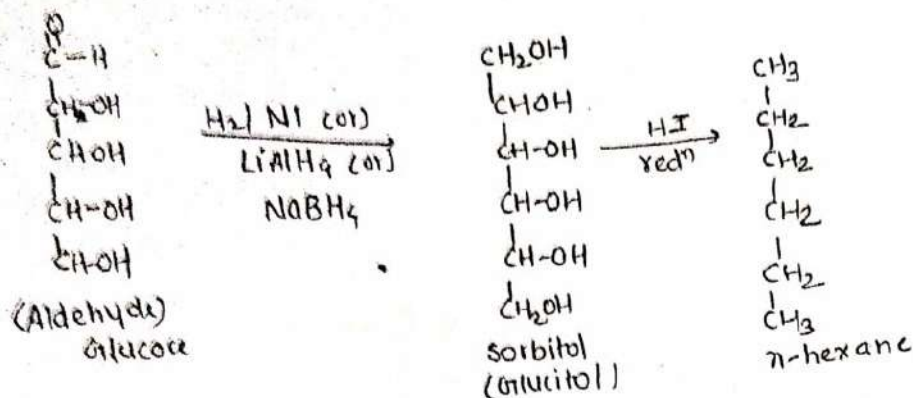 O
C-H
CH-OH
CHOH
CH-OH
CH-OH
(Aldehyde)
Glucose
H2/ Ni (or)
LiAlH4 (or)
NaBH4
CH2OH
CHOH
CH-OH
CH-OH
CH-OH
CH2OH
sorbitol
(Glucitol)
HI
redn
CH3
CH2
CH2
CH2
CH2
CH3
n-hexane